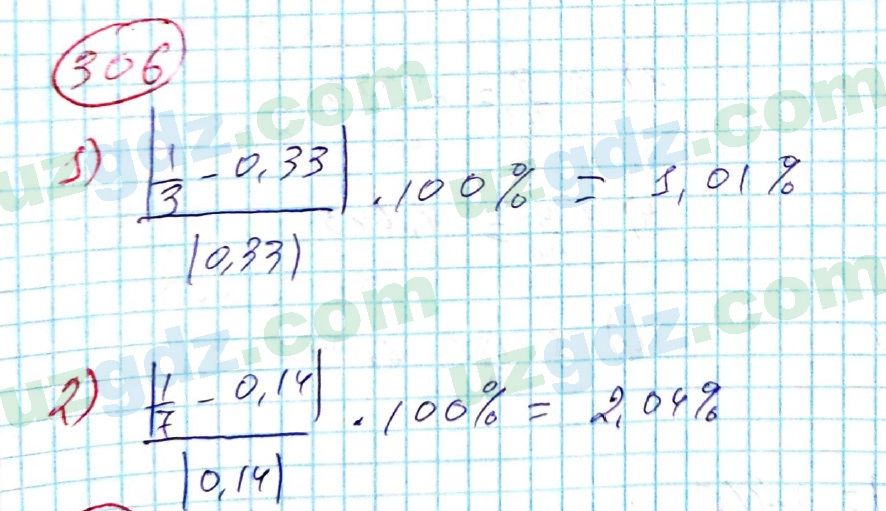 306
1) |1/3 - 0,33| / |0,33| · 100% = 1,01%
2) |1/7 - 0,14| / |0,14| · 100% = 2,04%
uzgdz.com
uzgdz.com
uzgdz.com
uzgdz.com